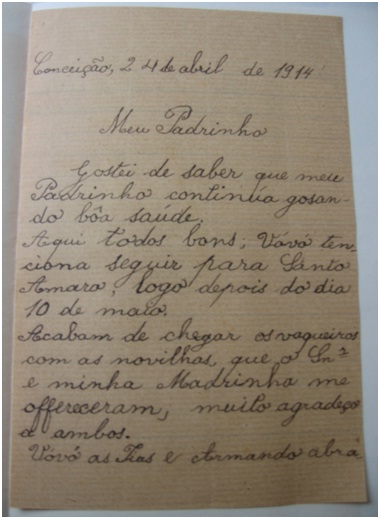 Conceição, 24 de abril de 1914
Meu Padrinho
Gostei de saber que meu
Padrinho continúa gosan-
do bôa saúde.
Aqui todos bons; Vóvó ten-
ciona seguir para Santo
Amaro, logo depois do dia
10 de maio.
Acabam de chegar os vaqueiros
com as novilhas, que o Snr.
e minha Madrinha me
offereceram, muito agradeço
a ambos.
Vóvó as Tias e Armando abra